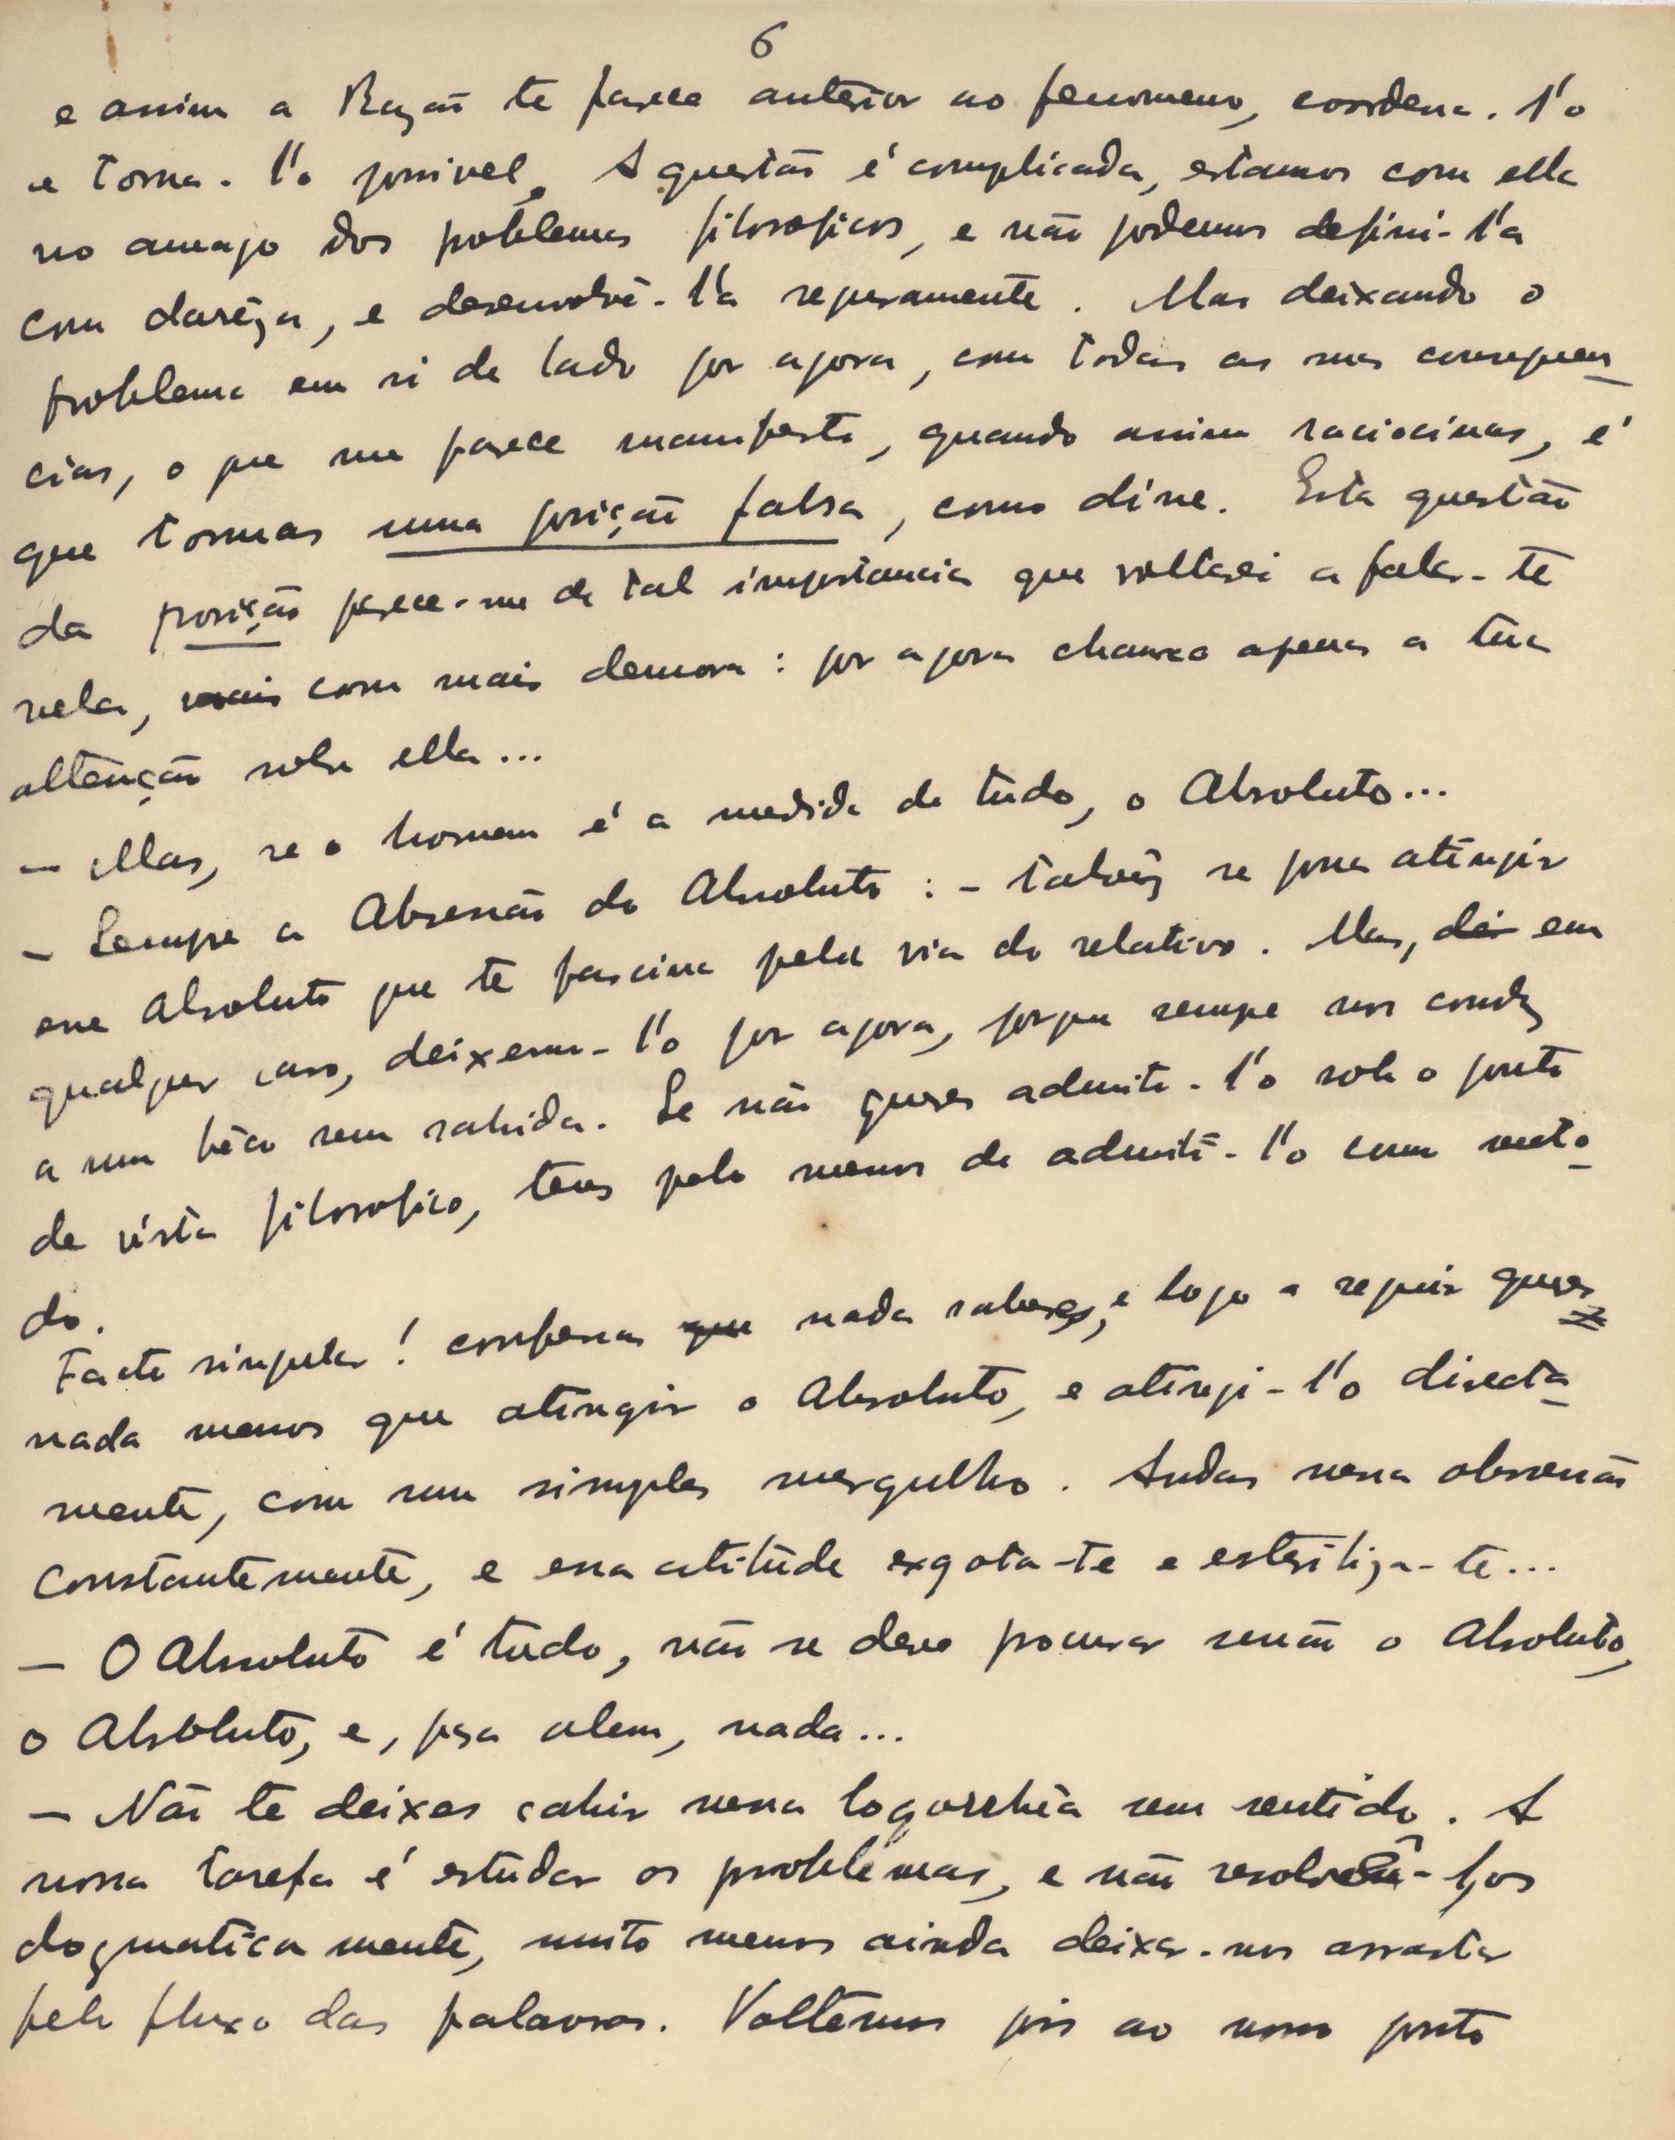 6
e assim a Razão te parece anterior ao fenomeno, coordena-l'o
e torna-l'o possivel. A questão é complicada, estamos com ella
no amago dos problemas filosoficos, e não podemos defini-l'a
com clarêza, e desenvolvê-l'a seguramente. Mas deixando o
problema em si de lado por agora, com todas as suas consequen-
cias, o que me parece manifesto, quando assim raciocinas, é
que tomas uma posição falsa, como disse. Esta questão
da posição parece-me de tal importancia que voltarei a falar-te
nela, mais com mais demora: por agora chamo apenas a tua
attenção sobre ella...
— Mas, se o homem é a medida de tudo, o Absoluto...
— Sempre a Obsessão do Absoluto: - talvêz se possa atingir
esse Absoluto que te fascina pela via do relativo. Mas, em
qualquer caso, deixemo-l'o por agora, porque sempre nos conduz
a um bêco sem sahida. Se não queres admiti-l'o sob o ponto
de vista filosofico, tens pelo menos de admiti-l'o como meto-
do.
Facto singular! confessas que nada saberes, e logo a seguir queres
nada menos que atingir o Absoluto, e atingi-l'o directa-
mente, com um simples mergulho. Andas nessa obsessão
constantemente, e essa atitude exgota-te e esteriliza-te...
— O Absoluto é tudo, não se deve procurar senão o Absoluto,
o Absoluto, e, pra alem, nada...
— Não te deixes cahir nessa logorrhêa sem sentido. A
nossa tarefa é estudar os problemas, e não resolvê-los
dogmaticamente, muito menos ainda deixar-nos arrastar
pelo fluxo das palavras. Voltemos pois ao nosso ponto